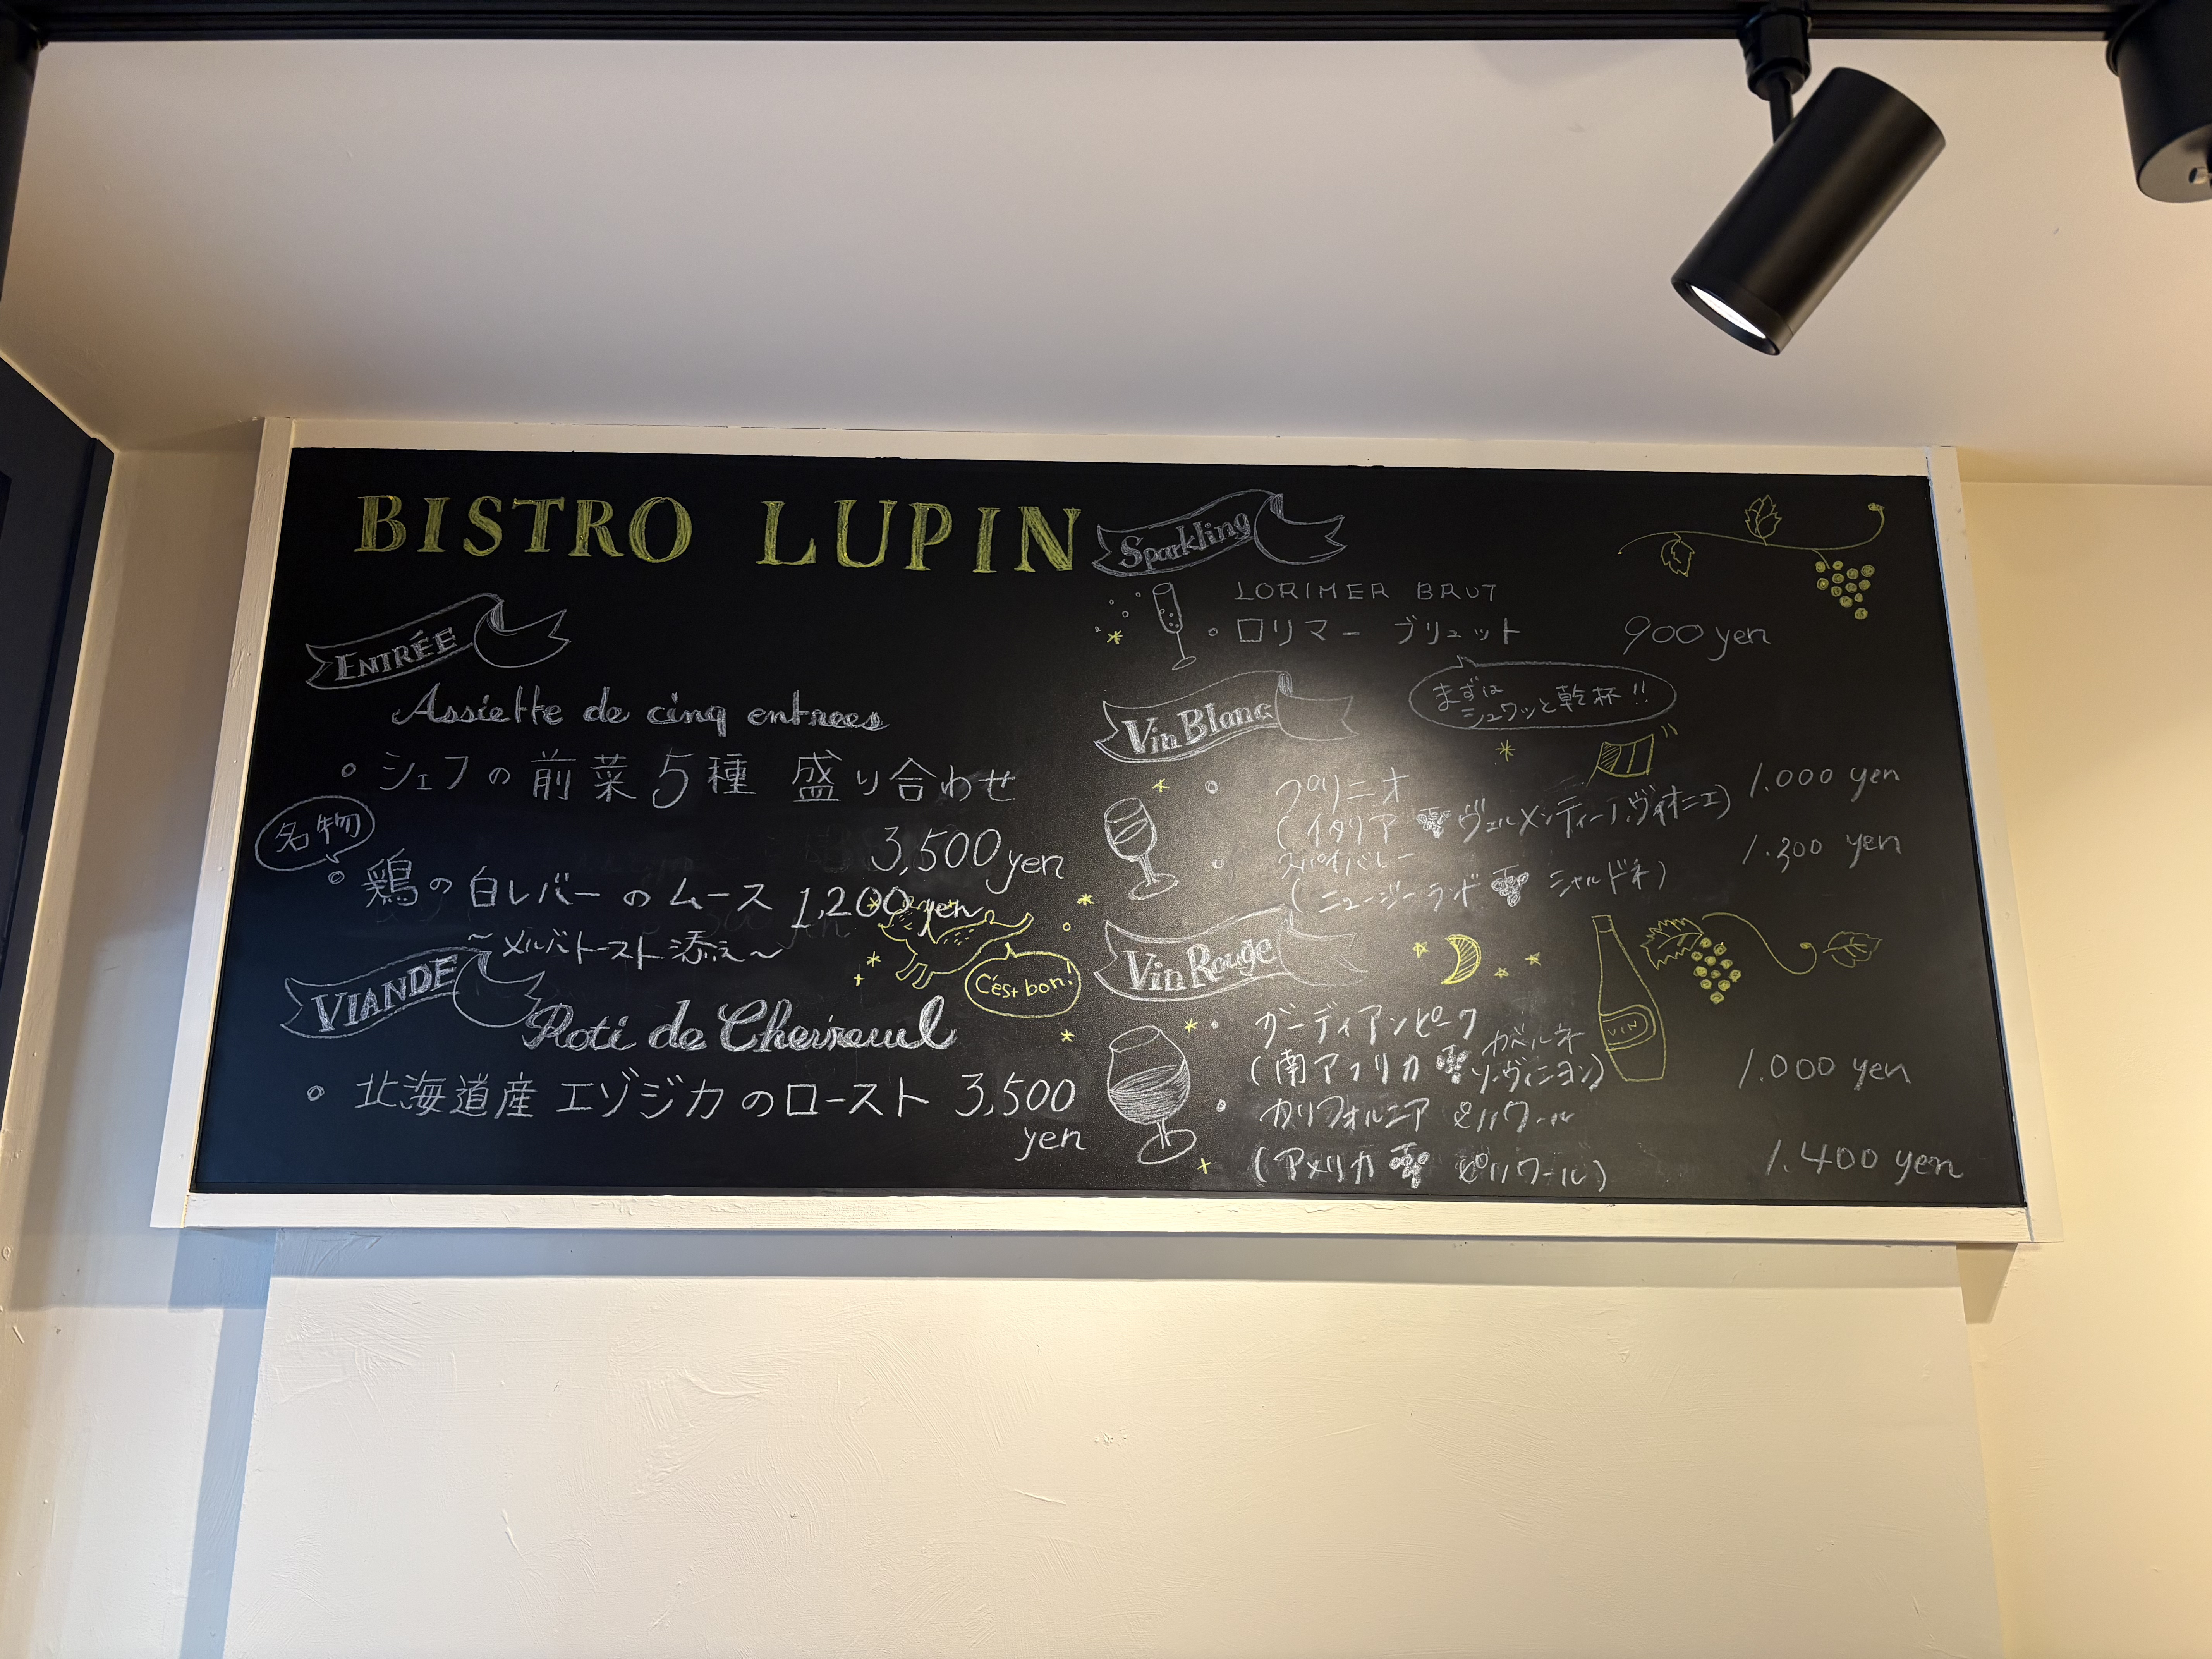 BISTRO LUPIN
ENTRÉE
Assiette de cinq entrees
シェフの前菜5種 盛り合わせ
3,500 yen
名物
鶏の白レバーのムース 1,200 yen
〜メルバトースト添え〜
C'est bon!
VIANDE
Roti de Chevreuil
北海道産 エゾジカのロースト 3,500
yen
Sparkling
LORIMER BRUT
ロリマー ブリュット 900 yen
まずは
シュワッと乾杯!!
Vin Blanc
プリニオ 1.000 yen
(イタリア ヴェルメンティーノ.ヴィオニエ)
スパイバレー 1.300 yen
(ニュージーランド シャルドネ)
Vin Rouge
ガーディアンピーク
(南アフリカ カベルネ
ソーヴィニヨン) 1.000 yen
カリフォルニア
(アメリカ ピノノワール) 1.400 yen
VIN